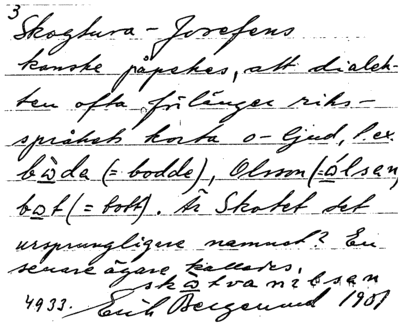 3
Skogtura - Josefens
kanske påpekas, att dialek-
ten ofta förlänger riks-
språkets korta o-ljud, t.ex.
bòda (= bodde), Olsson (= ólsan,
bot (= bott). Är Skotet det
ursprungligare namnet? En
senare ägare kallades,
skotvanilsan
4933. Erik Bergelund 1901